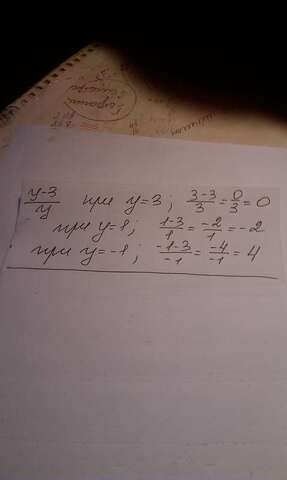 y-3/y при y=3; 3-3/3 = 0/3 = 0
при y=1; 1-3/1 = -2/1 = -2
при y=-1; -1-3/-1 = -4/-1 = 4